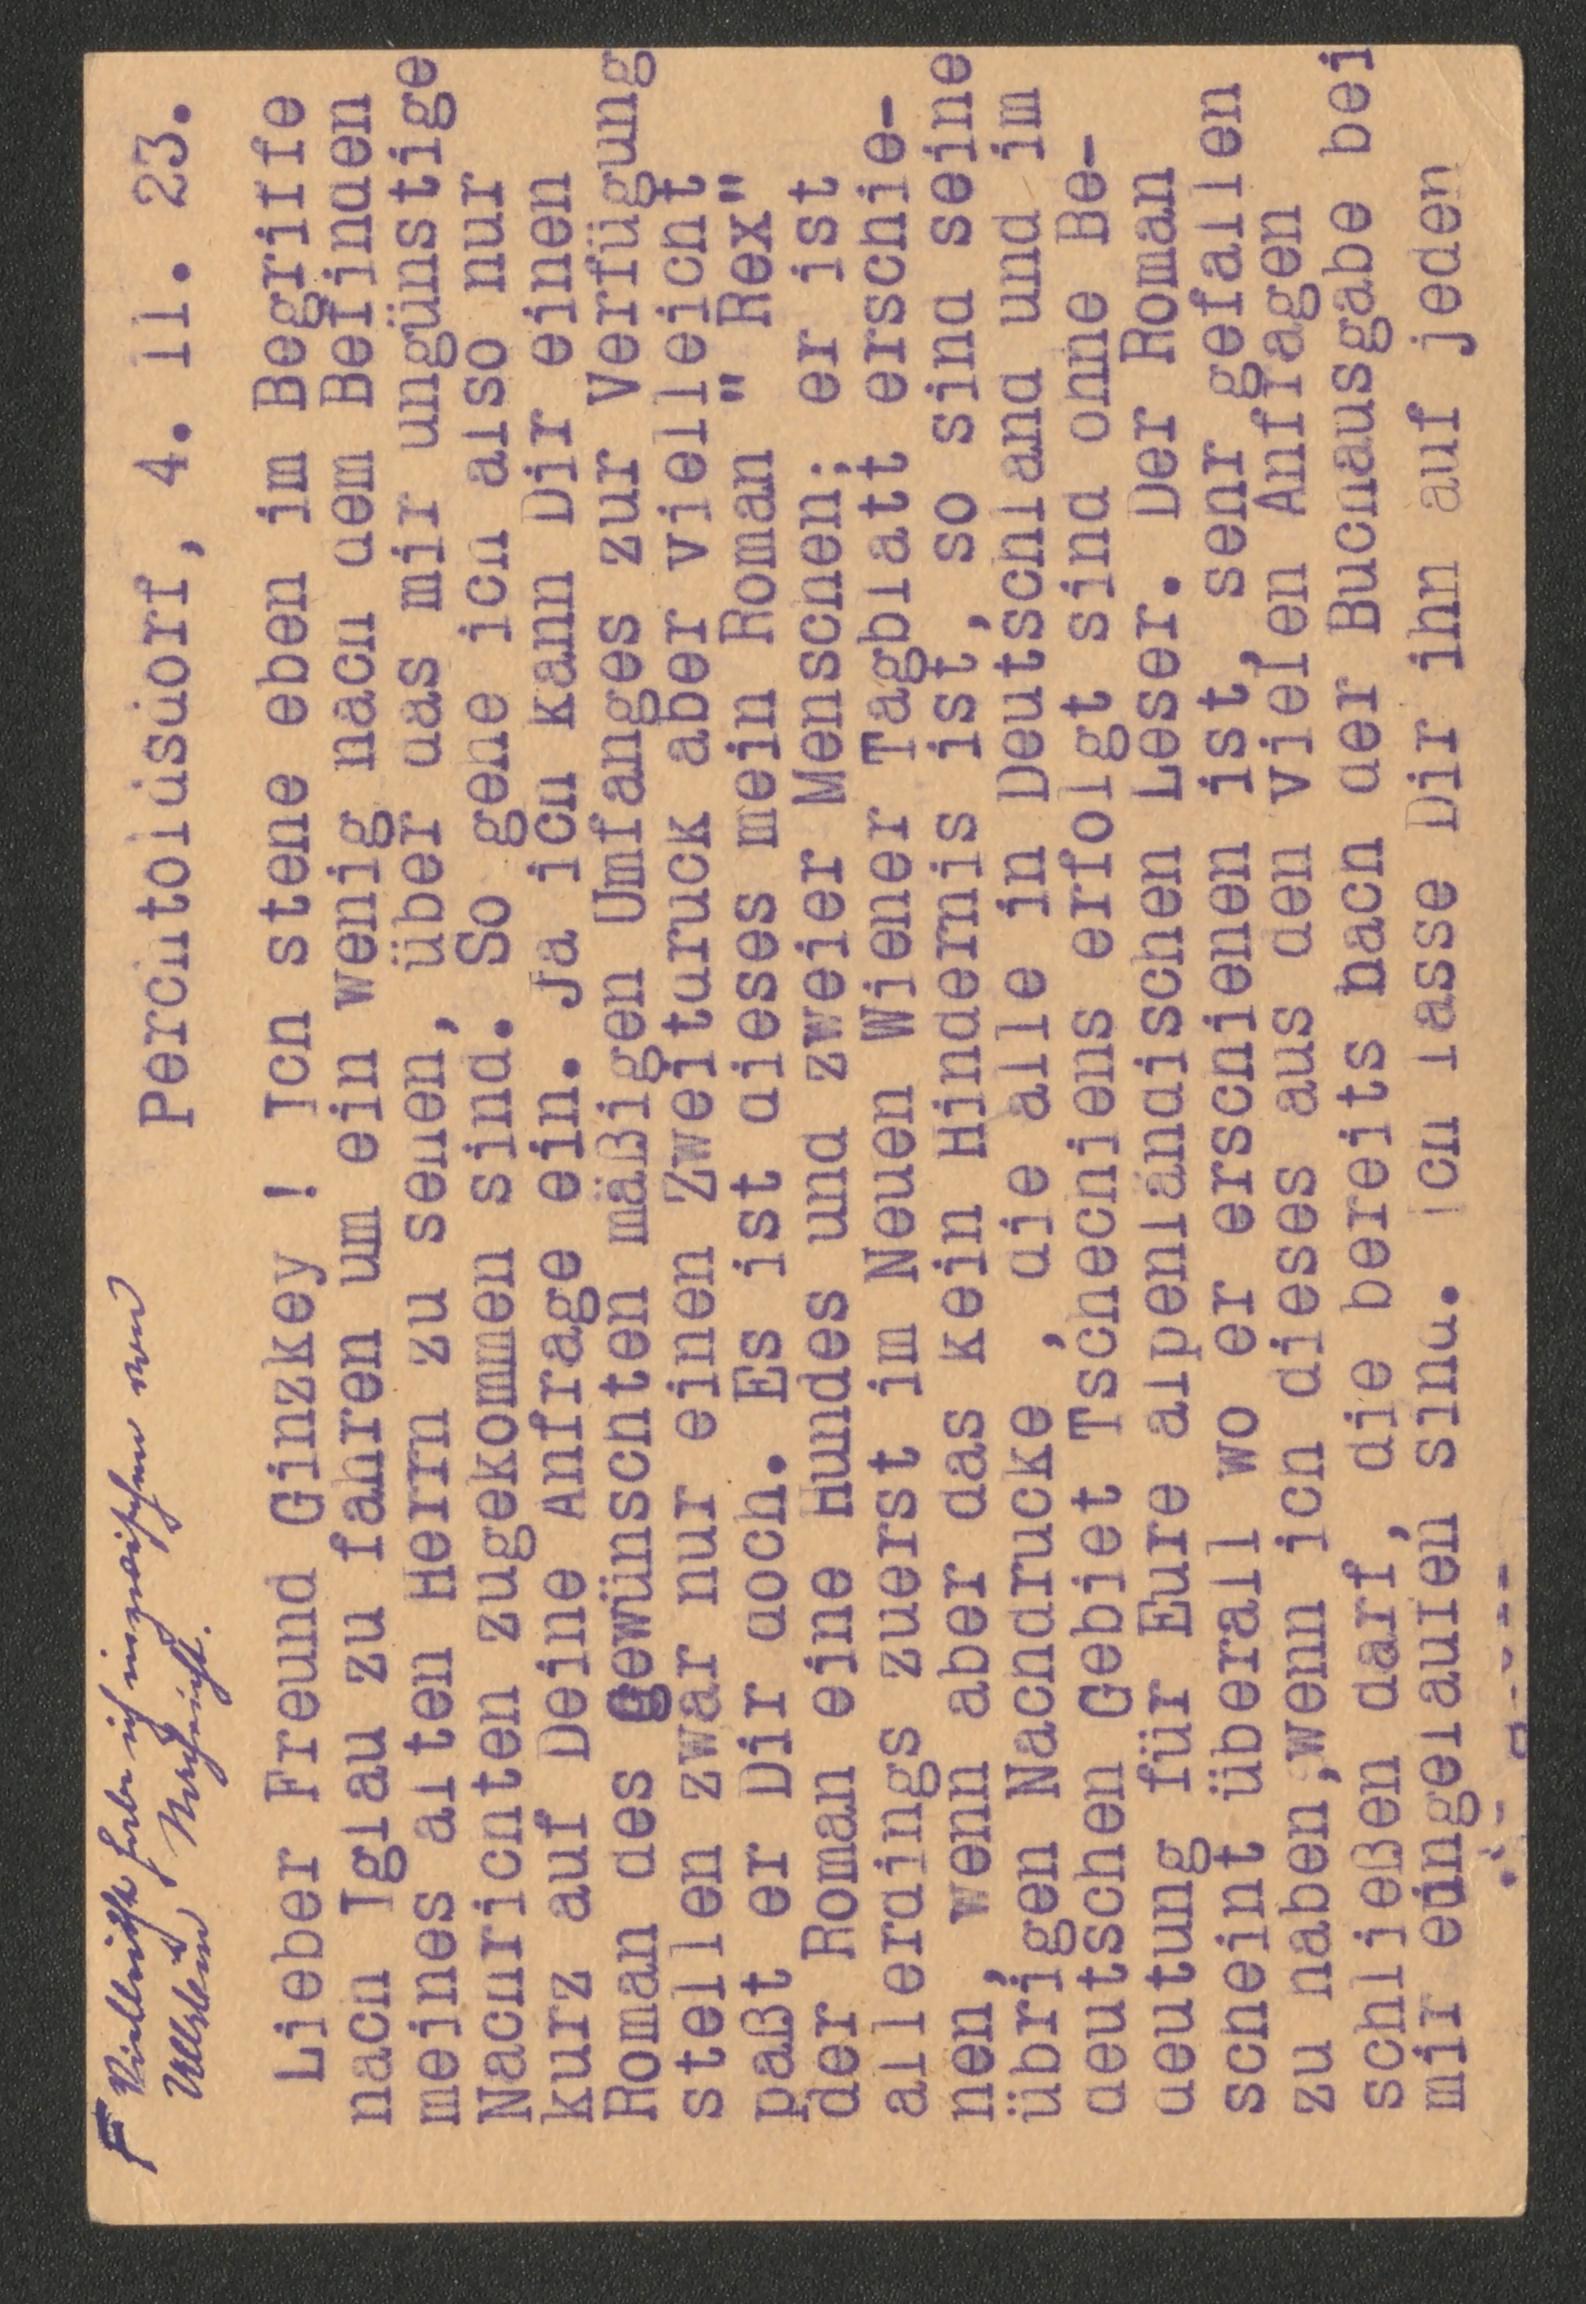 F Vielleicht habe ich inzwischen von
Ullstein Nachricht.
Perchtoldsdorf, 4. 11. 23.
Lieber Freund Ginzkey ! Ich stehe eben im Begriffe
nach Iglau zu fahren um ein wenig nach dem Befinden
meines alten Herrn zu sehen, über das mir ungünstige
Nachrichten zugekommen sind. So gehe ich also nur
kurz auf Deine Anfrage ein. Ja ich kann Dir einen
Roman des gewünschten mäßigen Umfanges zur Verfügung
stellen zwar nur einen Zweitdruck aber vielleicht
paßt er Dir doch. Es ist dieses mein Roman " Rex"
der Roman eine Hundes und zweier Menschen; er ist
allerdings zuerst im Neuen Wiener Tagblatt erschie-
nen, wenn aber das kein Hindernis ist, so sind seine
übrigen Nachdrucke , die alle in Deutschland und im
deutschen Gebiet Tschechiens erfolgt sind ohne Be-
deutung für Eure alpenländischen Leser. Der Roman
scheint überall wo er erschienen ist, sehr gefallen
zu haben,wenn ich dieses aus den vielen Anfragen
schließen darf, die bereits nach der Buchausgabe bei
mir eingelaufen sind. Ich lasse Dir ihn auf jeden